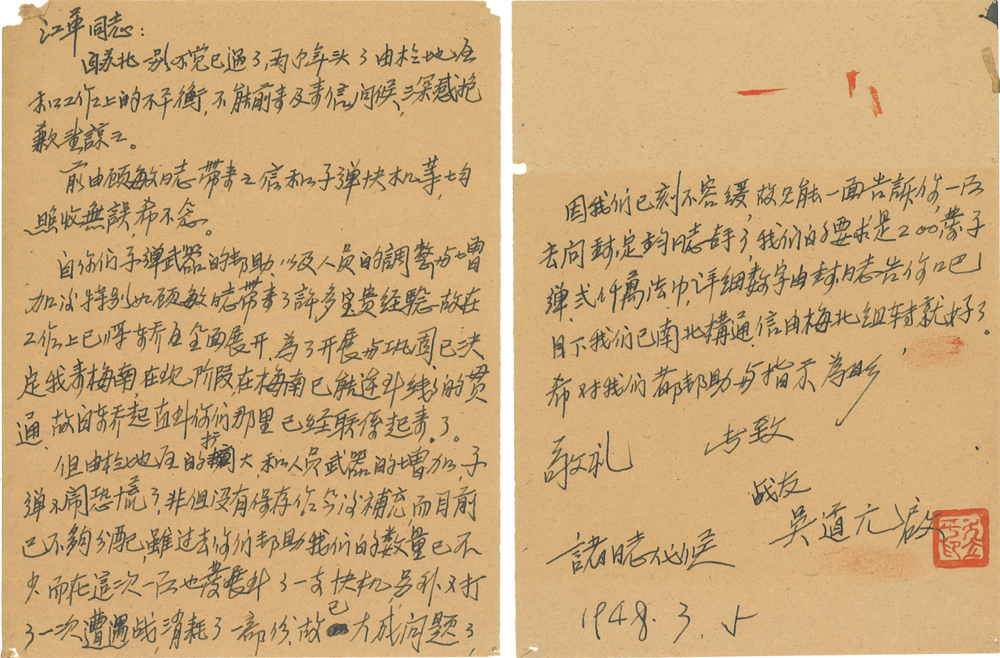 江華同志：
自苏北一别不觉已過了两个年头了由於地区
和工作上的不平衡，不能前来及来信问候，深感抱
歉重諒之。
前由顾敏同志带来之信和子弹快机等均
照收無誤，希不念。
自你们子弹武器的帮助，以及人员的調整与增
加后特别如顾敏同志带来了許多宝贵经驗，故在
工作上已 全面展开，為了开展与巩固已决
定我来梅南，在现阶段，在梅南已能连斗线的贯
通，故自 起直到你们那里已经联係起来了。
但由於地区的扩大，和人员武器的增加，子
弹又闹恐慌了，非但没有保存 没補充而目前
已不夠分配，雖过去你们帮助我们的数量已不
少，而在這次一区也發展到了一支快机，另外又打
了一次遭遇战，消耗了一部份，故已大成问题了
因我们已刻不容缓，故只能一面告訴你，一面
去向封定 同志 了，我们的要求是200發子
弹，式仟萬法巾，详细数字由封同志告你吧
目下我们已南北構通，信由梅北组转就好了。
希对我们都帮助与指示為盼
专致
敬礼
战友
吴道元啟
諸同志代候
1948.3.5